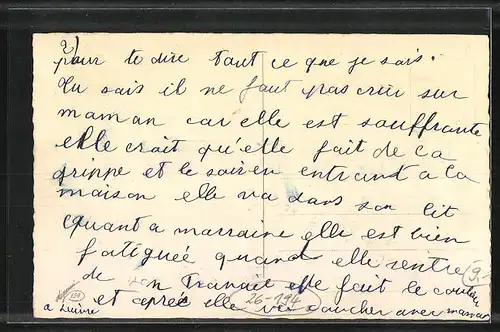 2)
pour te dire tant ce que je sais.
Tu sais il ne faut pas crier sur
maman car elle est souffrante
elle crait qu'elle fait de la
grippe et le soir en entrant a la
maison elle va dans son lit
Quant a marraine elle est bien
fatiguée quand elle rentre
de son travail elle fait le
et après elle va coucher avec maman
a suivre
26-194